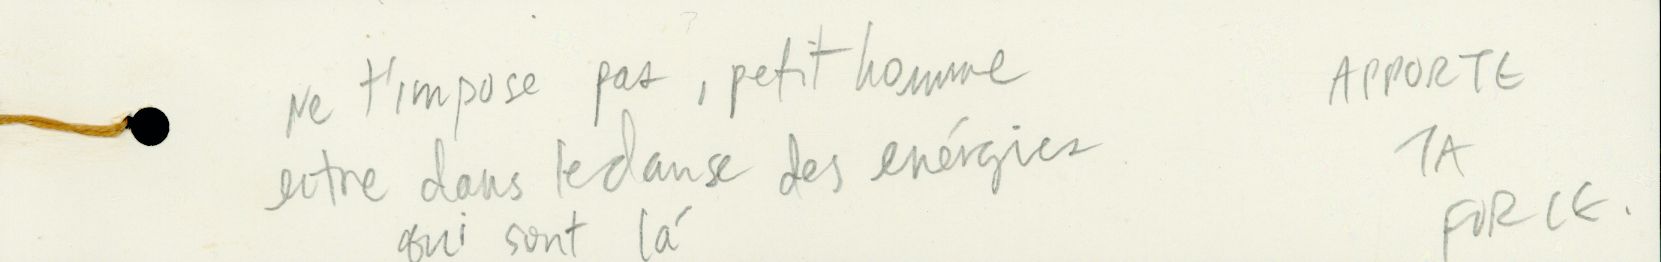 Ne t'impose pas, petit homme
entre dans le danse des enérgies
qui sont lá
APPORTE
TA
FORCE.